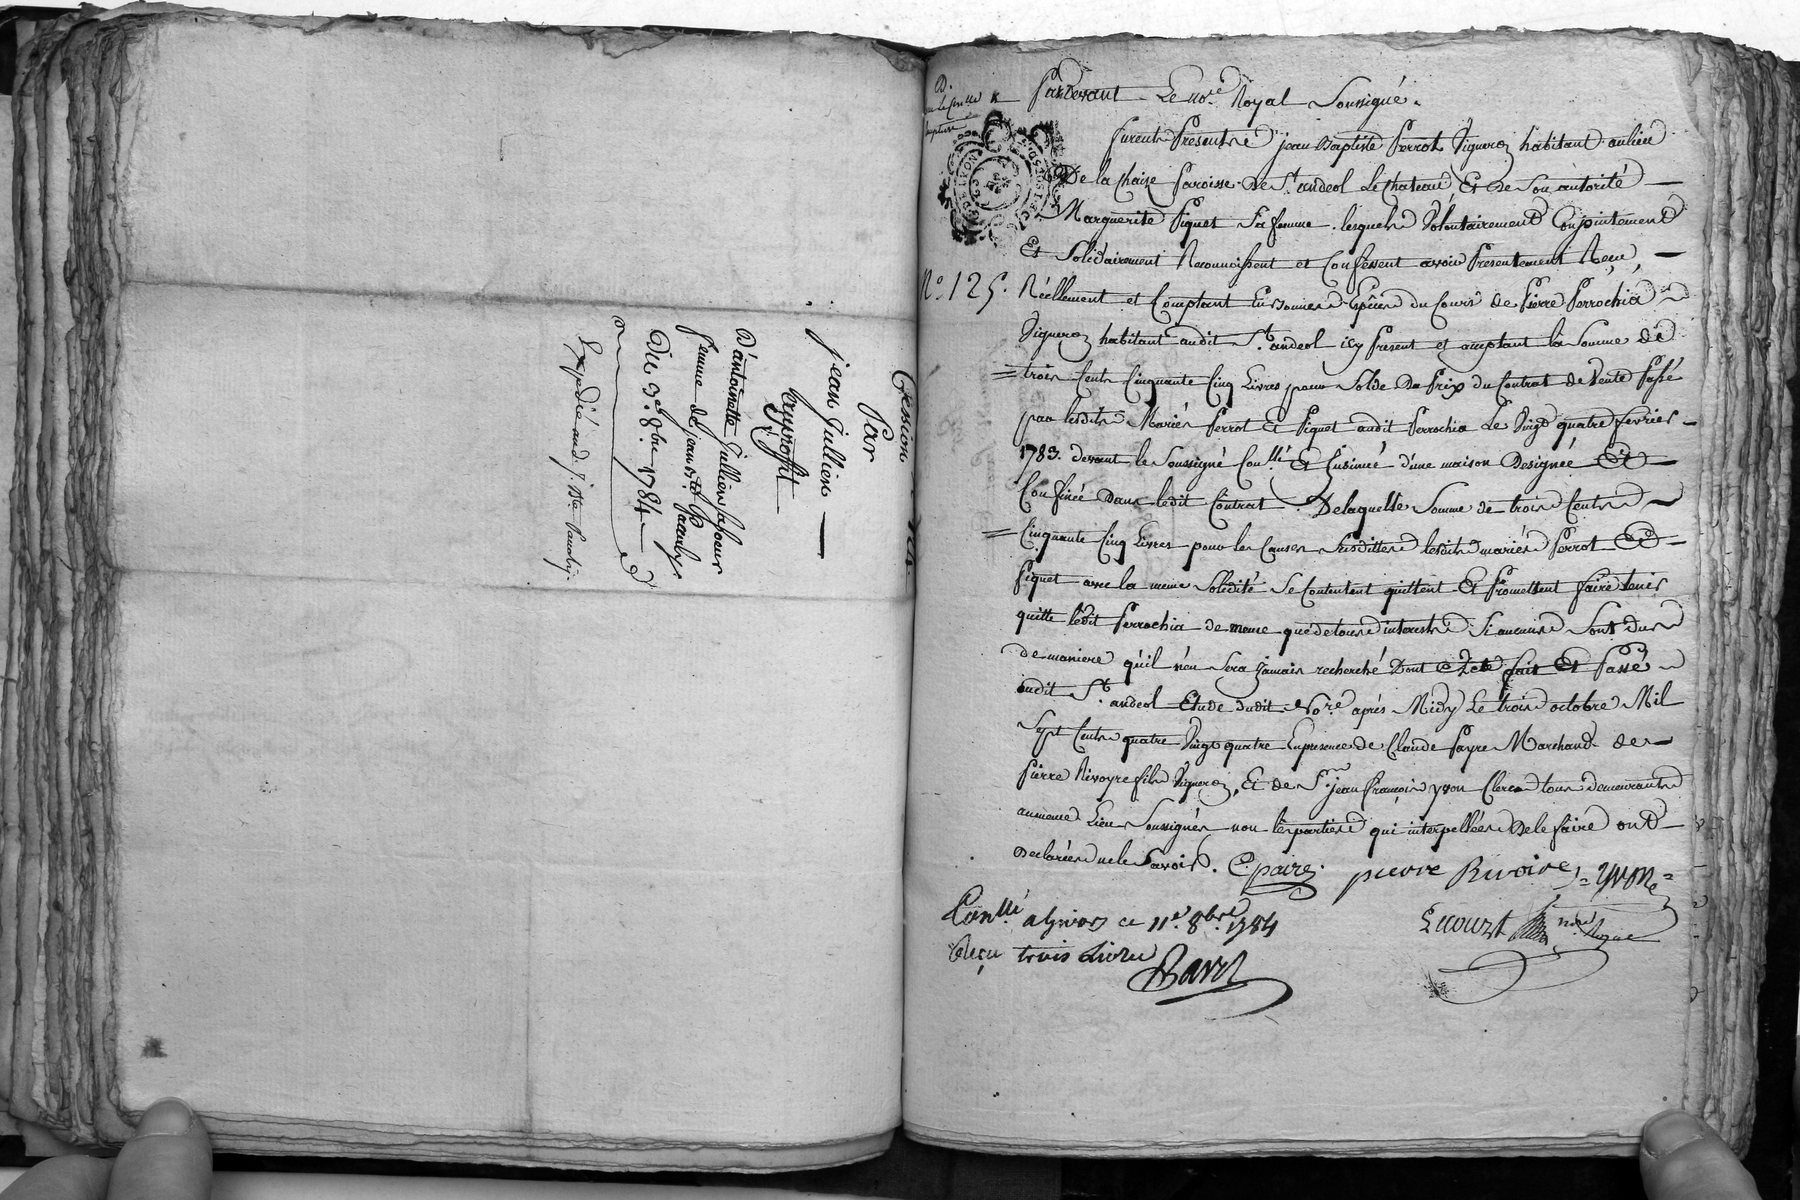 Cession
Par
jean jullien
au proffit
D'antoinette Jullien sa soeur
femme de jean Bte
Du 3e. 8bre 1784
Expédié aud.
Pardevant Le nore. Royal Soussigné.
furent Presents jean Baptiste Perrot Vigneron habitant au lieu
De la Chaize Paroisse De St. andéol Le Chateau Et de Son autorité
Marguerite Piquet Sa femme lesquels Volontairement Conjointement
Et Solidairement Reconnoissent et Confessent avoir Presentement Recu,
No. 125.
Réellement et Comptant En bonnes Espèces du Cours de Pierre Perrochia
Vigneron habitant audit St. andeol icy Present et acceptant la Somme de
trois Cents Cinquante Cinq Livres pour Solde Du Prix du Contrat de Vente Passé
par lesdits Mariés Perrot Et Piquet audit Perrochia Le Vingt quatre fevrier
1783. devant le Soussigné Conllé Et Insinué d'une maison Designée Et
Confinée Dans ledit Contrat. De laquelle Somme de trois Cents
Cinquante Cinq Livres pour les Causes Susdittes lesdits mariés Perrot Et
Piquet avec la meme Solidité Se Contentent quittent Et Promettent faire tenir
quitte ledit Perrochia de meme que de tous interests Si aucuns Sont dus
de maniere qu'il n'en Sera jamais recherché Dont Acte fait Et Passé
audit St. andeol Etude dudit Nore. aprés Midy Le trois octobre Mil
Sept Cents quatre Vingt quatre En presence de Claude Payre Marchand de
Pierre Rivoyre fils Vigneron, Et de Sr. jean François yvon Clerc tous demeurants
au meme Lieu Soussignés non les parties qui interpellées De le faire ont
Declarées ne le Savoir. C payre. pierre Rivoire, = yvon =
Conllé a Givors ce 11e. 8bre. 1784
Recu trois Livres